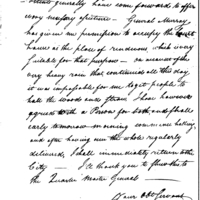 generally have come forwards to offer
every necessary assistance — General Murray
has given me permission to occupy the Court
house as the place of rendezvous, which is very
suitable for that purpose — on account of the
very heavy rain that continued all this day
it was impossible for me to get people to
haul the woods and straw I have however
agreed with a Person for both, and shall
early tomorrow morning commence hauling,
and after having seen the whole regularly
delivered, I shall immediately return to the
City — I'll thank you to show this to
the Quarter Master General